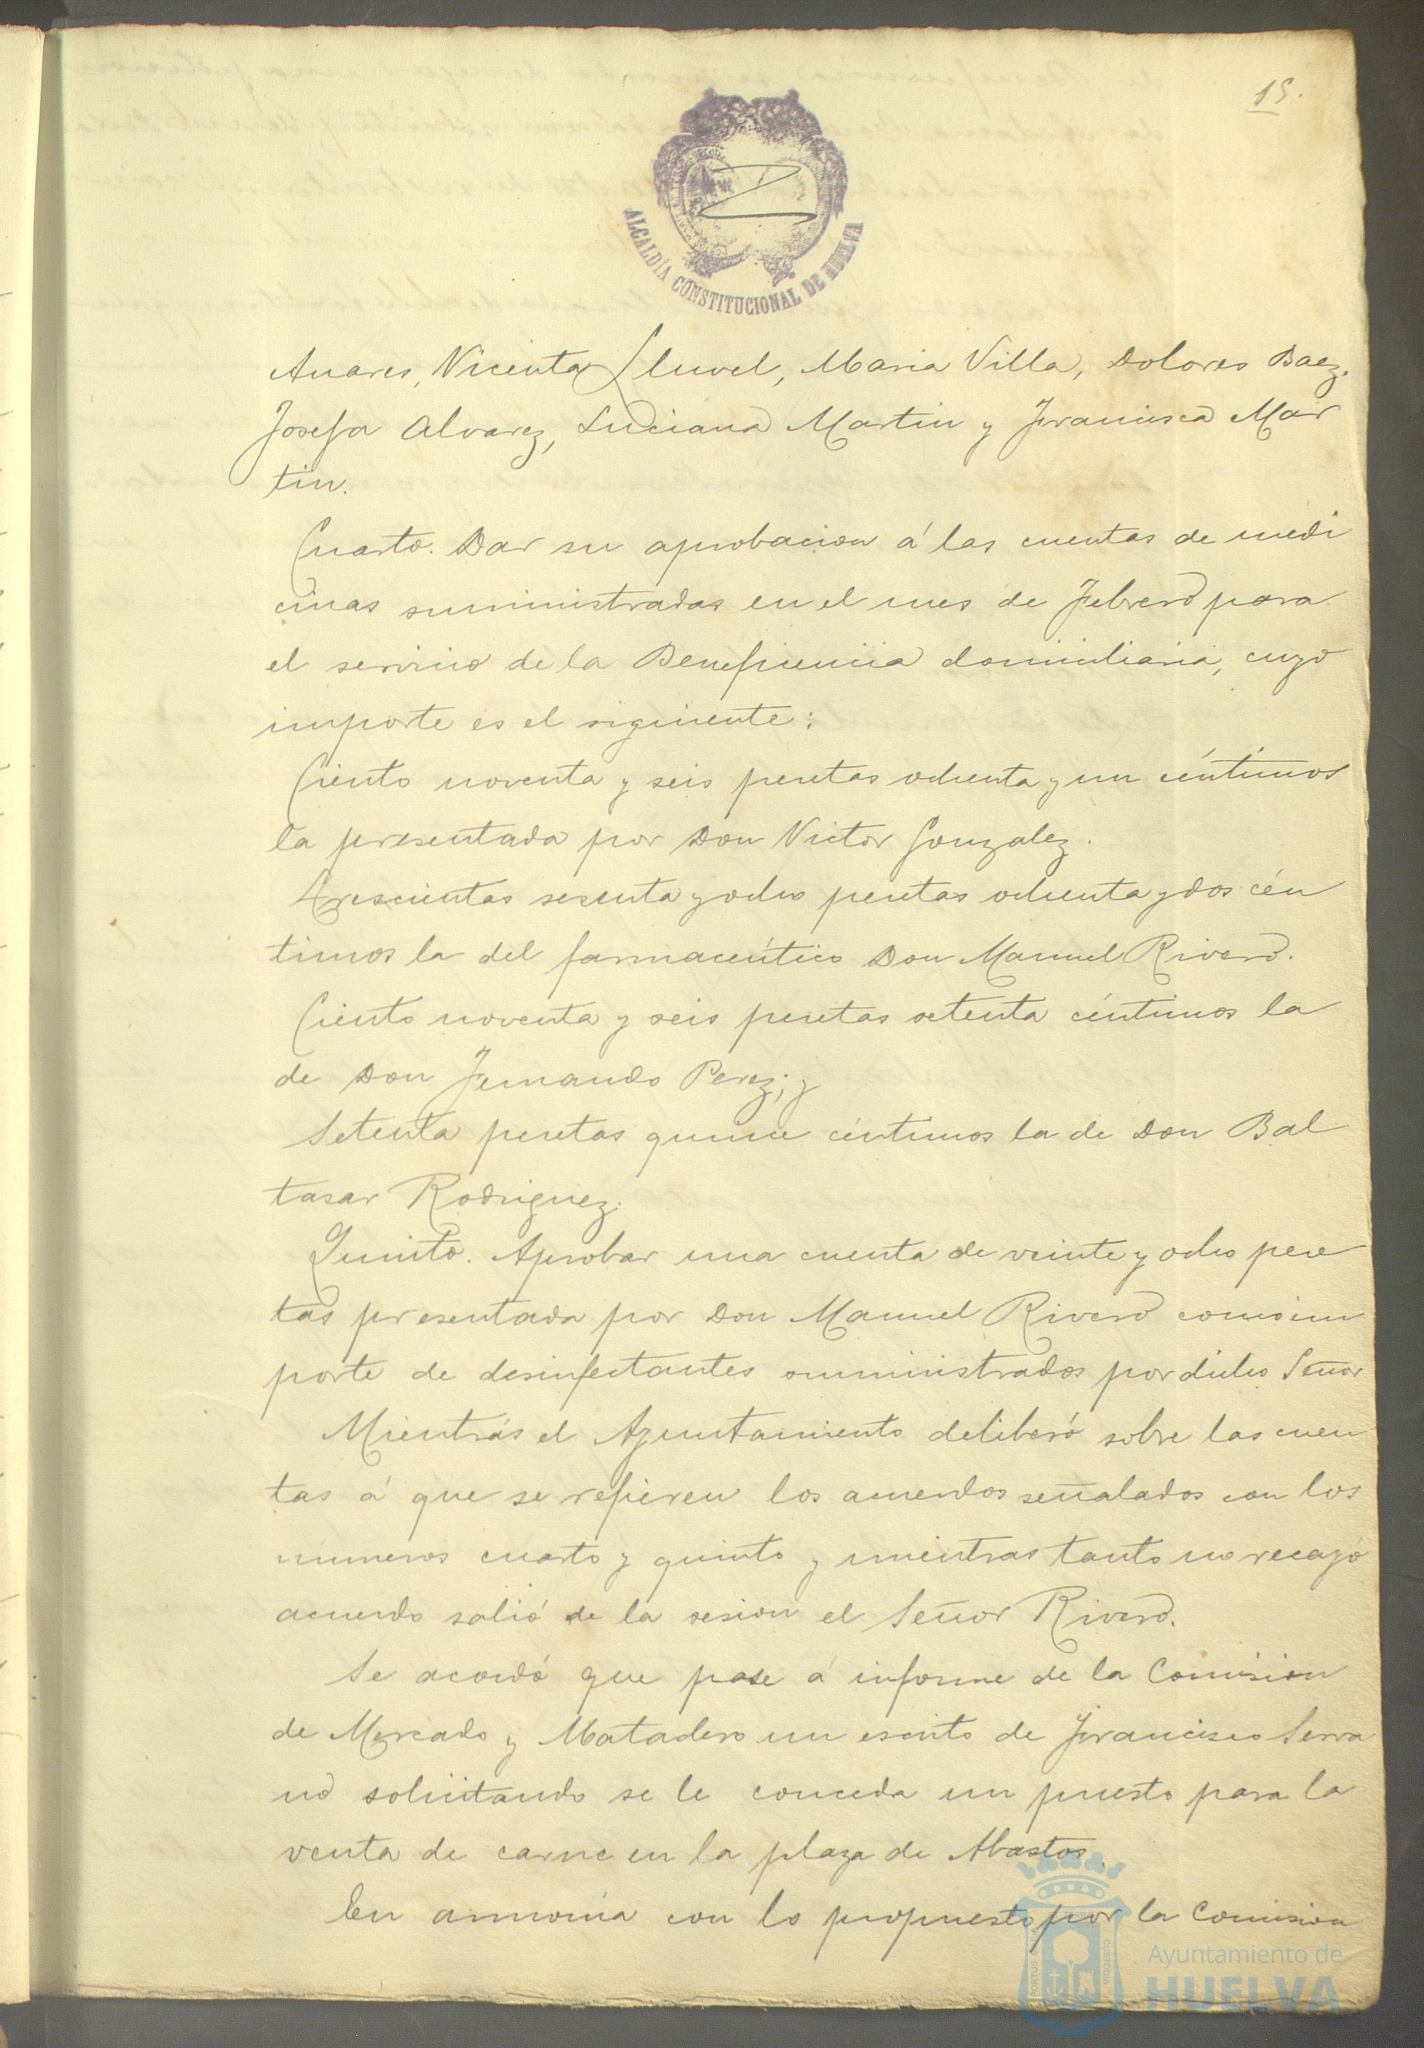 15.
ALCALDÍA CONSTITUCIONAL DE HUELVA
Vicenta Lluvel, Maria Villa, Dolores Baez,
Josefa Alvarez, Luciana Martin y Francisca Mar
tin.
Cuarto. Dar su aprobacion á las cuentas de medi
cinas suministradas en el mes de Febrero para
el servicio de la Beneficencia domiciliaria, cuyo
importe es el siguiente:
Ciento noventa y seis pesetas ochenta y un céntimos
la presentada por Don Victor Gonzalez.
Trescientas sesenta y ocho pesetas ochenta y dos cén
timos la del farmacéutico Don Manuel Rivero.
Ciento noventa y seis pesetas setenta céntimos la
de Don Fernando Perez; y
Setenta pesetas quince céntimos la de Don Bal
tasar Rodriguez.
Quinto. Aprobar una cuenta de veinte y ocho pese
tas presentada por Don Manuel Rivero como im
porte de desinfectantes suministrados por dicho Señor
Mientrás el Ayuntamiento deliberó sobre las cuen
tas á que se refieren los acuerdos señalados con los
números cuarto y quinto y mientras tanto no recayó
acuerdo salió de la sesion el Señor Rivero.
Se acordó que pase á informe de la Comision
de Mercado y Matadero un escrito de Francisco Serra
no solicitando se le conceda un puesto para la
venta de carne en la plaza de Abastos.
En armonía con lo propuesto por la Comision
Ayuntamiento de
HUELVA